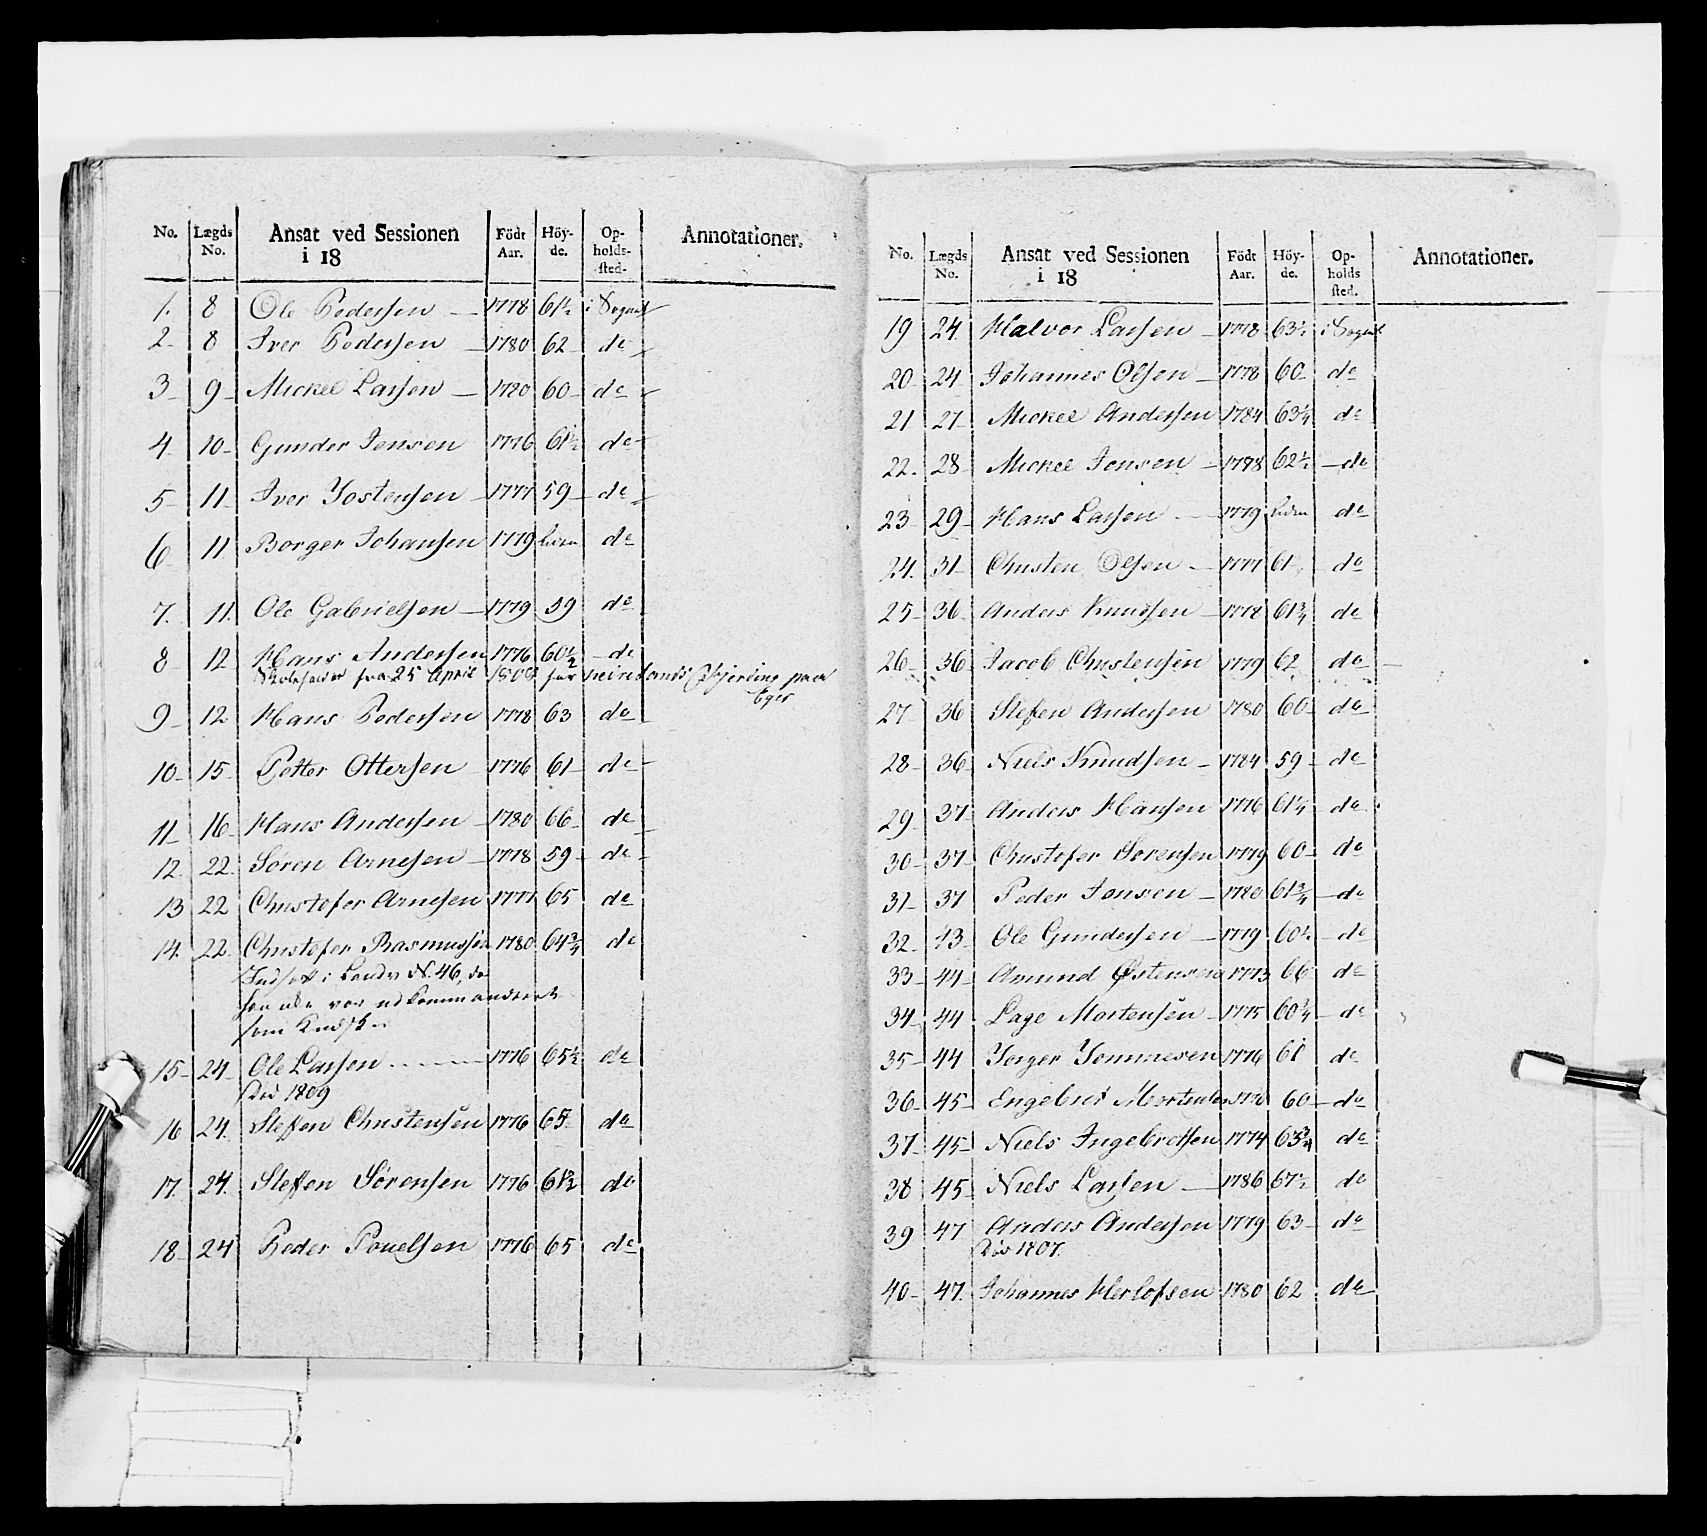 No. Lægds No. Ansat ved Sessionen i 18 Födt Aar. Höy-de. Op-holds-sted. Annotationer.
1. 8 Ole Pedersen 1778 61½ i Sognet
2 8 Iver Pedersen 1780 62 do
3 9 Mickel Larsen 1780 60 do
4 10 Gunder Jensen 1776 61½ do
5 11 Iver Jostensen 1777 59 do
6 11 Borger Johansen 1779 liden do
7. 11. Ole Gabrielsen 1779 59 do
8 12 Hans Andersen 1776 60½ do
fra 25 April for paa
Eger
9 12 Hans Pedersen 1778 63 do
10 15 Petter Ottersen 1776 61 do
11 16 Hans Andersen 1780 66 do
12 22 Sören Arnesen 1778 59 do
13 22 Christofer Arnesen 1777 65 do
14. 22. Christofer Rasmussen 1780 64¾ do
Indsatt i Lands N. 46, da
han var udkommanderet
som
15 24 Ole Larsen 1776 65½ do
Död 1809
16 24. Steffen Christensen 1776 65 do
17. 24. Steffen Sörensen 1776 61½ do
18 24 Peder Pouelsen 1776 65 do
No. Lægds No. Ansat ved Sessionen i 18 Födt Aar. Höy-de. Op-holds sted. Annotationer.
19 24 Halvor Larsen 1778 63½ i Sognet
20 24 Johannes Olsen 1778 60 do
21 27 Mickel Andersen 1784 63¼ do
22. 28 Mickel Jensen 1778 62½ do
23 29 Hans Larsen 1779 liden do
24. 31 Christen Olsen 1777 61 do
25 36 Anders Knudsen 1778 61¾ do
26 36 Jacob Christensen 1779 62 do
27 36 Stefen Andersen 1780 60 do
28 36 Niels Knudsen 1784 59 do
29 37 Anders Hansen 1776 61¼ do
30 37 Christofer Sörensen 1779 60 do
31 37 Peder Jensen 1780 61¾ do
32 43 Ole Gundersen 1779 60½ do
33 44 Amund Östensen 1773 66 do
34 44 Lage Mortensen 1775 60¼ do
35 44 Jörger Jommesen 1776 61 do
36 45 Engebret Mortensen 60 do
37 45 Niels Ingebretsen 1774 63¾ do
38 45 Niels Larsen 1786 67½ do
39 47 Anders Andersen 1779 63 do
Död 1807.
40 47. Johannes Herlofsen 1780 62 do